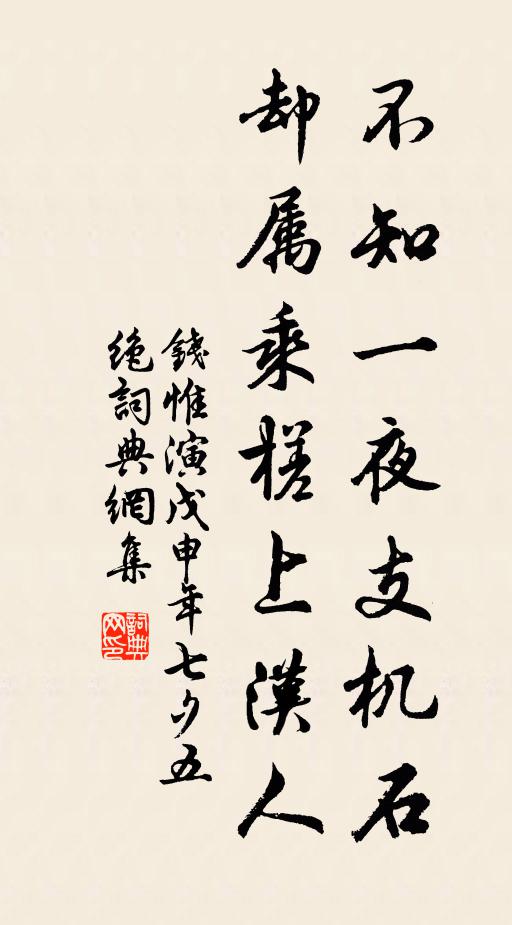 不知一夜支机石
却属乘槎上漢人
錢惟演戊申年七夕五
绝詞典網集
詞典网印